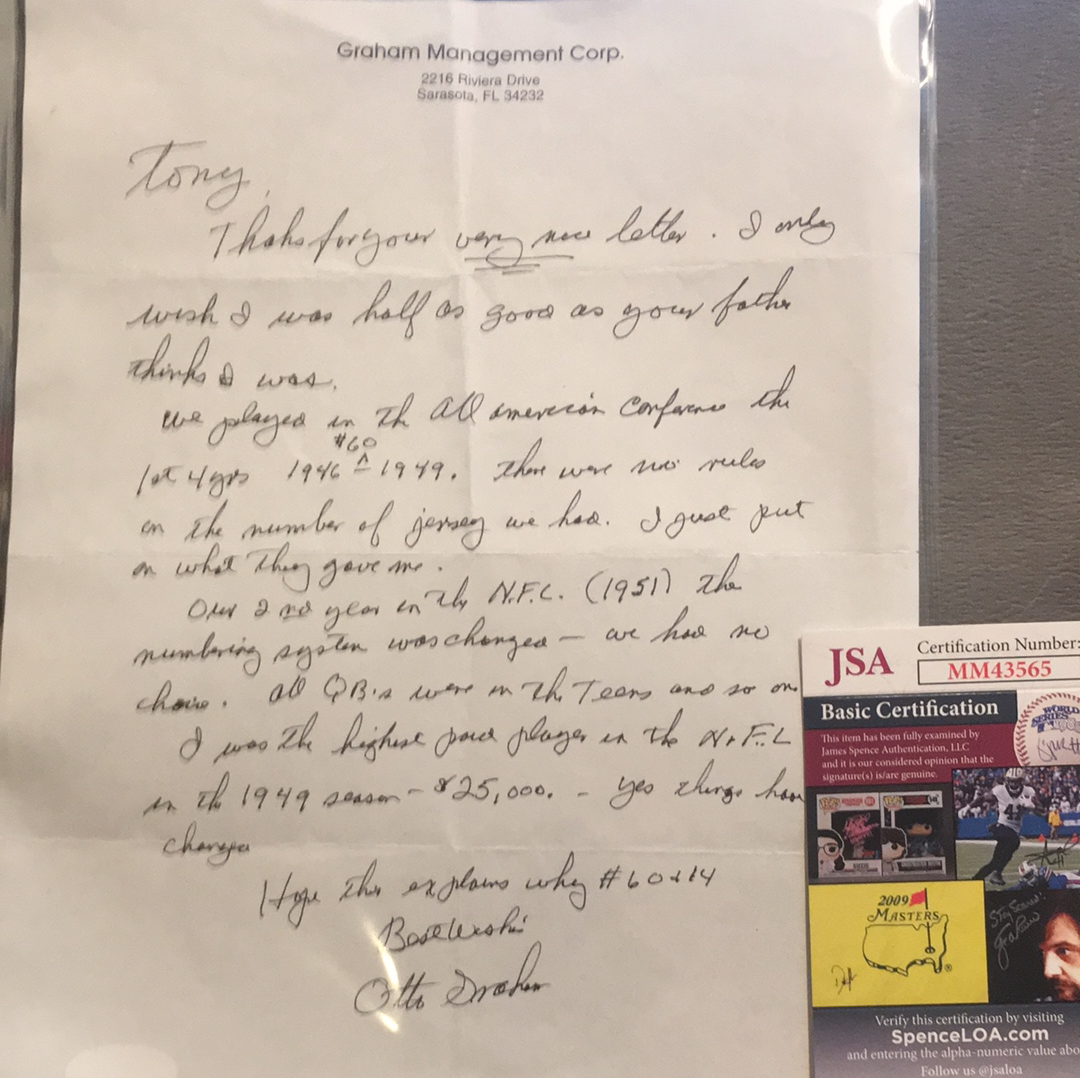 Graham Management Corp.
2216 Riviera Drive
Sarasota, FL 34232
Tony,
Thaks for your very nice letter. I only
wish I was half as good as your father
thinks I was.
We played in the All American Conference the
#60
1st 4 yrs 1946 ^ 1949. There were no rules
on the number of jersey we had. I just put
on what they gave me.
Our 2nd year in the N.F.L. (1951) the
numbering system was changed — we had no
choice. All QB's were in the Teens and so on
I was the highest paid player in the N.F.L
in the 1949 season - $25,000. - Yes things have
changed
Hope this explains why #60 & 14
Best Wishes
Otto Graham
JSA
Certification Number:
MM43565
Basic Certification
This item has been fully examined by
James Spence Authentication, LLC
and it is our considered opinion that the
signature(s) is/are genuine.
WORLD
SERIES
41
2009
MASTERS
Verify this certification by visiting
SpenceLOA.com
and entering the alpha-numeric value
Follow us @jsaloa